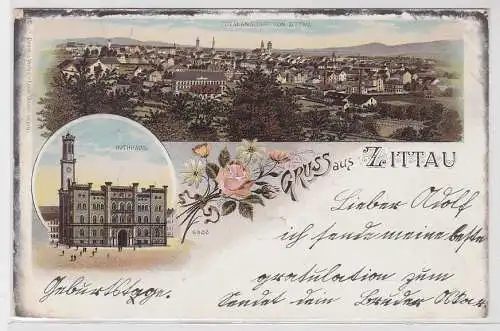 TOTALANSICHT VON ZITTAU
RATHHAUS
GRUSS aus ZITTAU
6402
Lieber Adolf
ich sende meine beste
gratulation zum
Geburtstage.
Sendet dein Bruder